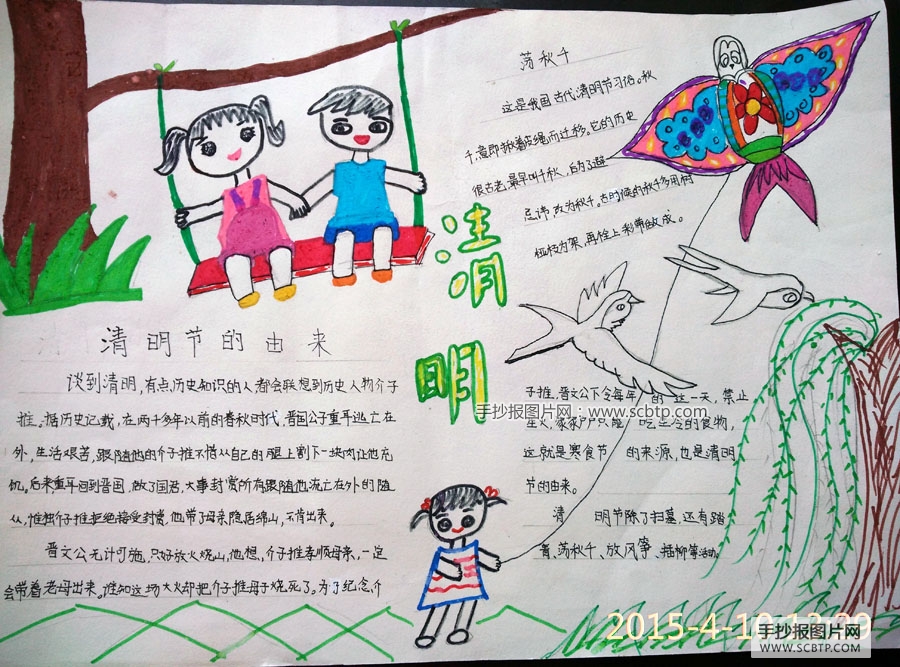 荡秋千
这是我国古代清明节习俗。秋
千,意即揪着皮绳而迁移。它的历史
很古老,最早叫千秋,后为了避
忌讳,改为秋千。古时候的秋千多用树
桠枝为架,再栓上彩带做成。
清明
清明节的由来
谈到清明,有点历史知识的人都会联想到历史人物介子
推。据历史记载,在两千多年以前的春秋时代,晋国公子重耳逃亡在
外,生活艰苦,跟随他的介子推不惜从自己的腿上割下一块肉让他充
饥。后来重耳回到晋国,做了国君,大事封赏所有跟随他流亡在外的随
从,惟独介子推拒绝接受封赏,他带了母亲隐居绵山,不肯出来。
晋文公无计可施,只好放火烧山,他想,介子推孝顺母亲,一定
会带着老母出来。谁知这场大火却把介子推母子烧死了。为了纪念介
子推,晋文公下令每年 的这一天,禁止
星火,家家户户只能 吃生冷的食物,
这就是寒食节 的来源,也是清明
节的由来。
清 明节除了扫墓,还有踏
青、荡秋千、放风筝、插柳等活动。
手抄报图片网:www.scbtp.com
2015-4-10 13:39
手抄报图片网
WWW.SCBTP.COM